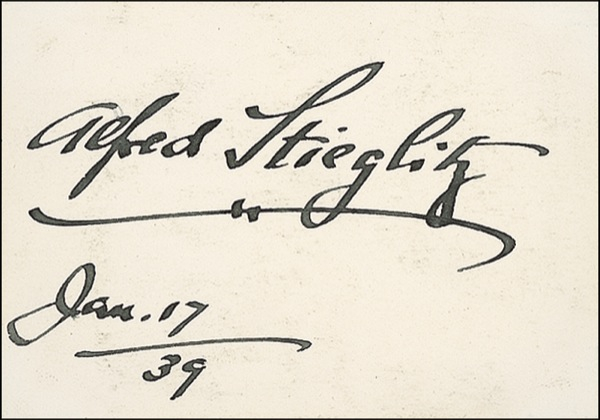 Alfred Stieglitz
Jan. 17
39